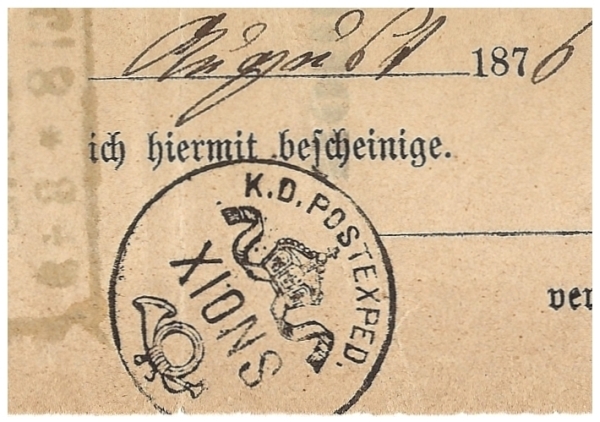 August 1876
ich hiermit bescheinige.
K.D. POSTEXPED.
XIONS
ver